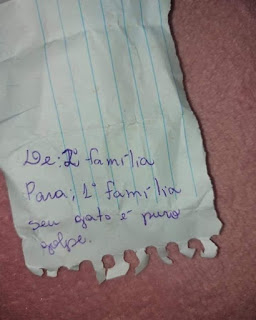 De: 2ª família
Para; 1ª família
seu gato é puro
golpe.